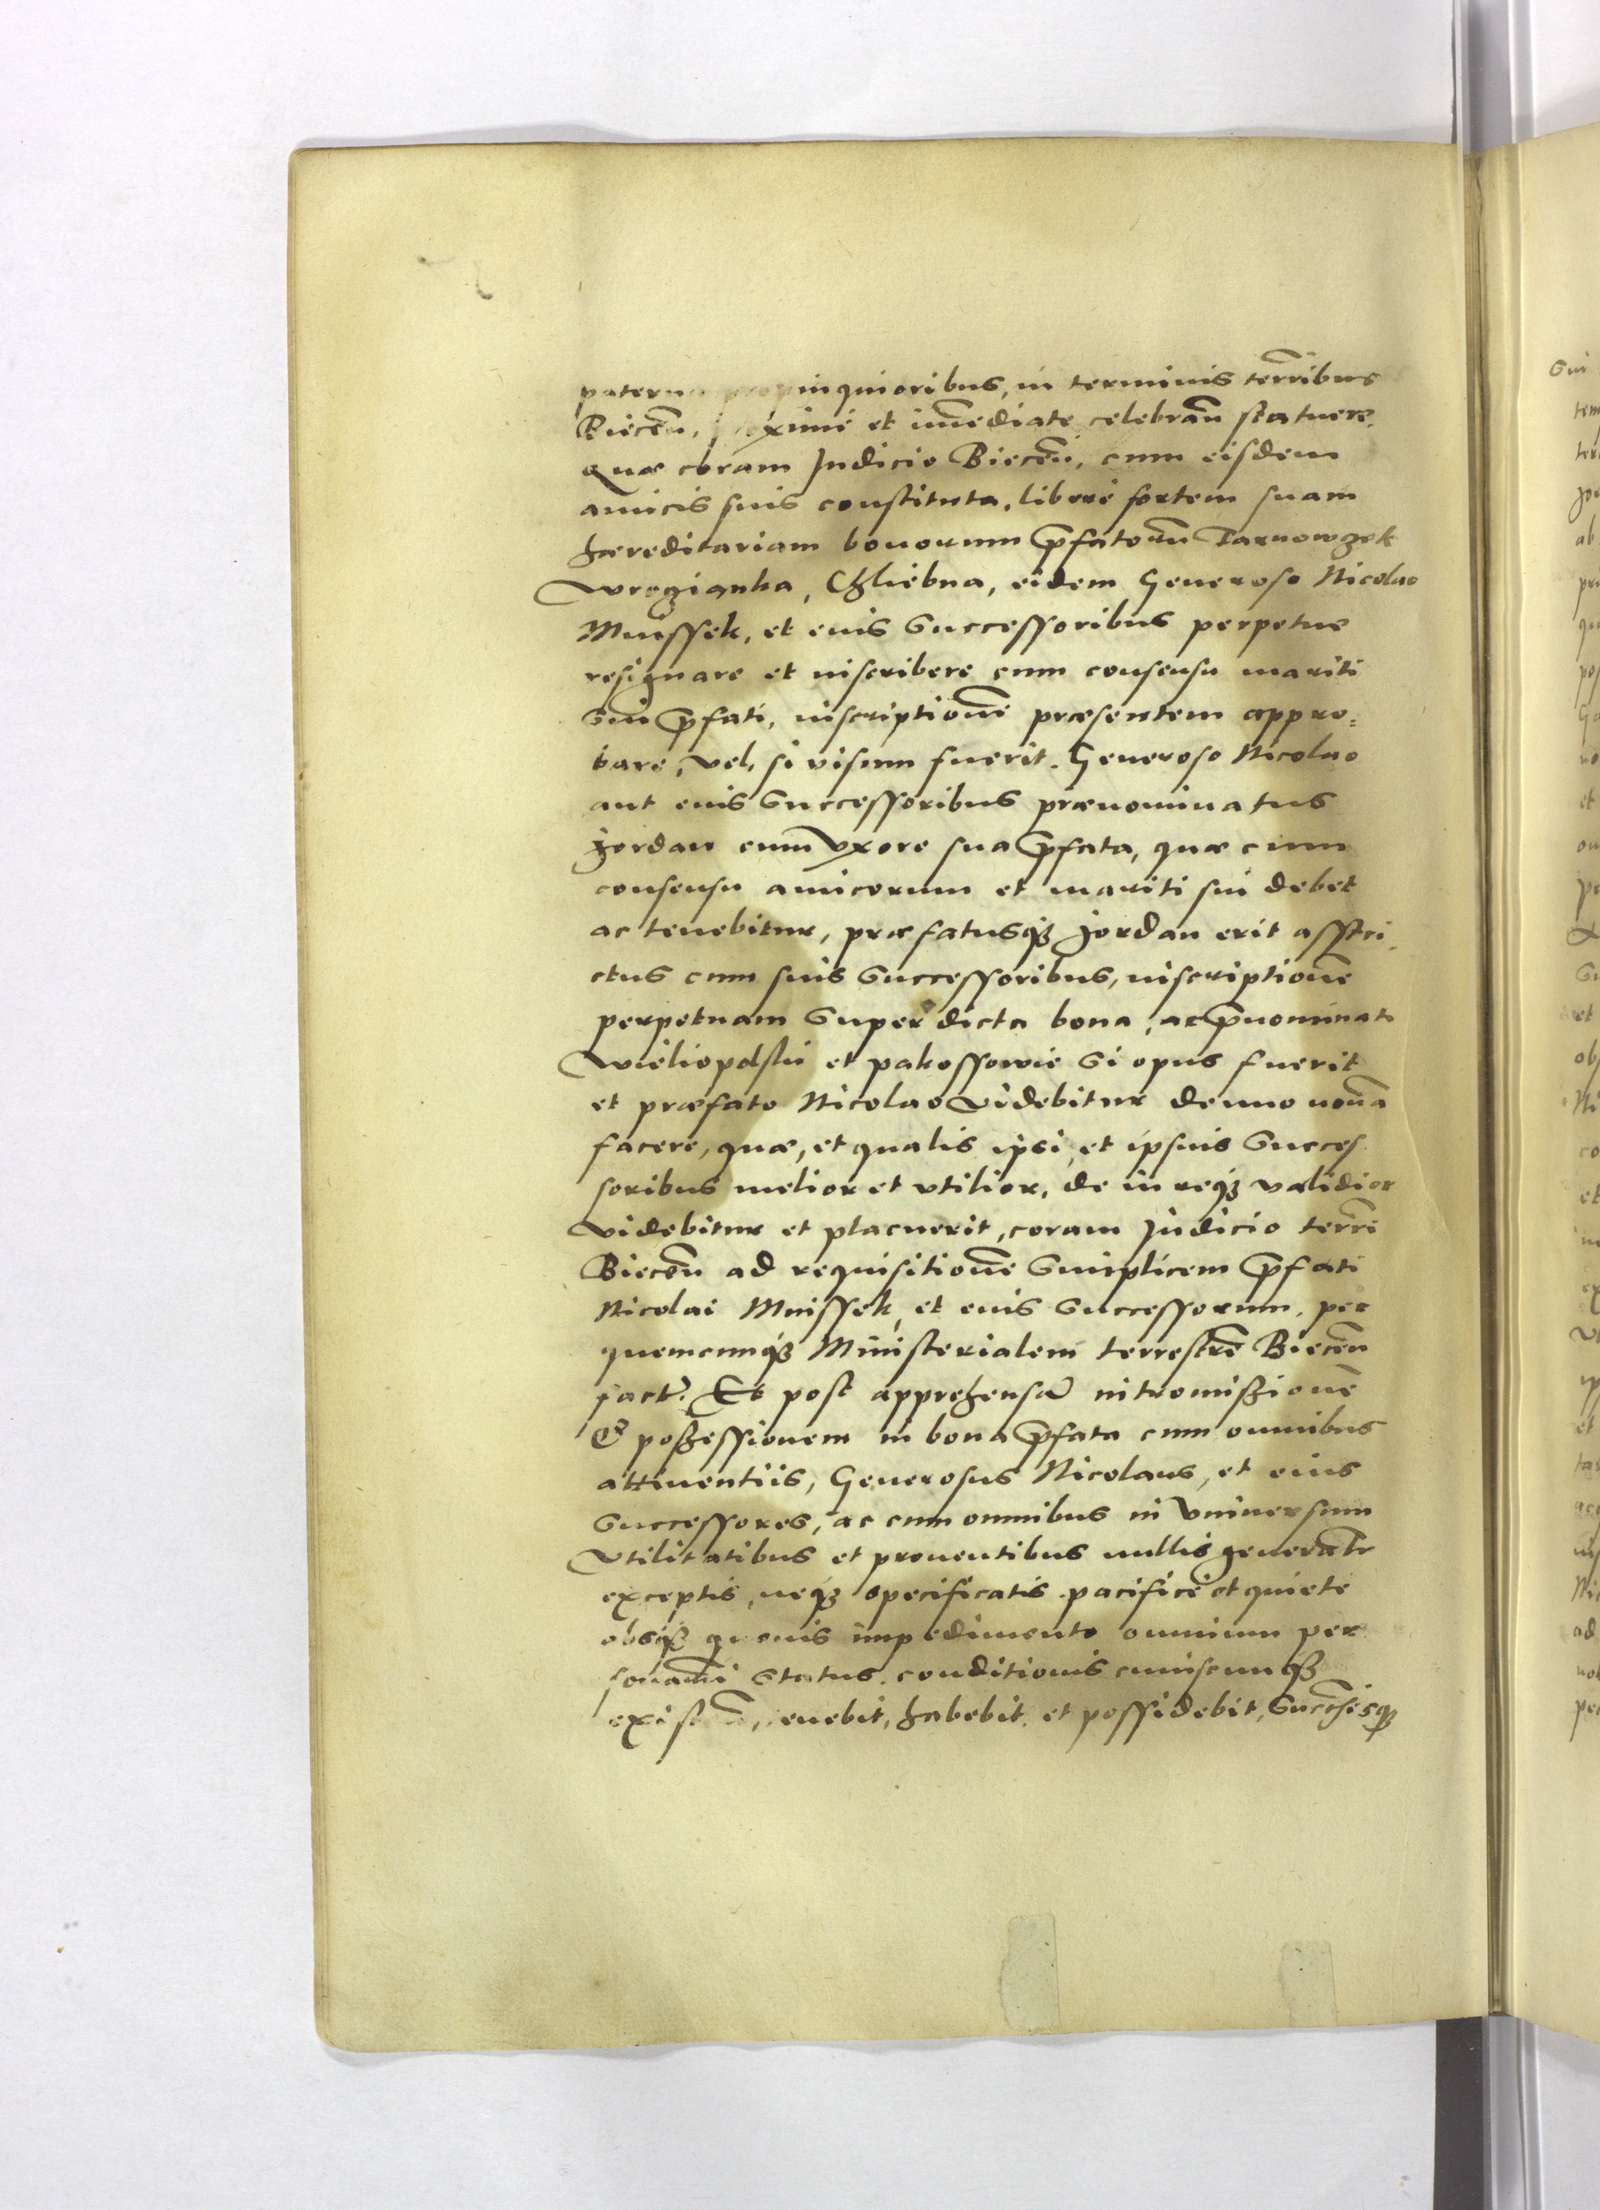 paterna propinquioribus, in terminis terrribus
Biecen̄, proximè et im̄ediate celebran̄ statuere.
Quæ coram Iudicio Biecen̄, cum eisdem
amicis suis constituta, liberè sortem suam
hæreditariam bonorum p̄fatorū Tarnowzek
Wrozianka, Chliebna, eidem Generoso Nicolao
Mnissek, et eius Successoribus perpetuè
resignare et inscribere cum consensu mariti
Sui p̄fati, inscriptionē præsentem appro=
bare, vel, si visum fuerit. Generoso Nicolao
aut eius Successoribus prænominatus
Jordan cum Vxore sua p̄fata, quæ cum
consensu amicorum et mariti sui debet
ac tenebitur, præfatusq̨ Jordan erit asstri,
ctus cum suis Successoribus, inscriptionē
perpetuam Super dicta bona, ac p̄nominati
Wieliopolski et pakossowie Si opus fuerit
et præfato Nicolao Videbitur denuo nouā
facere, quæ, et qualis ipsi, et ipsius Succes
soribus melior et vtilior, de iureq̨ validior
Videbitur et placuerit, coram Judicio terrē
Biecen̄ ad requisitionē Simplicem p̄fati
Nicolai Mnissek, et eius Successorum, per
quemcunq̨ Ministerialem terrestrē Biecen̄
fact. Et post apprehensā intromißionē
& poßessionem in bona p̄fata cum omnibus
attinentiis, Generosus Nicolaus, et eius
Successores, ac cum omnibus in Vniuersum
Vtilitatibus et prouentibus nullis generalr
exceptis, neq̨ specificatis pacificè et quietè
absq̨ quouis impedimento omnium per
sonarū Status, conditionis cuiuscunq̨
existen̄, tenebit, habebit, et possidebit, Succēsq̨